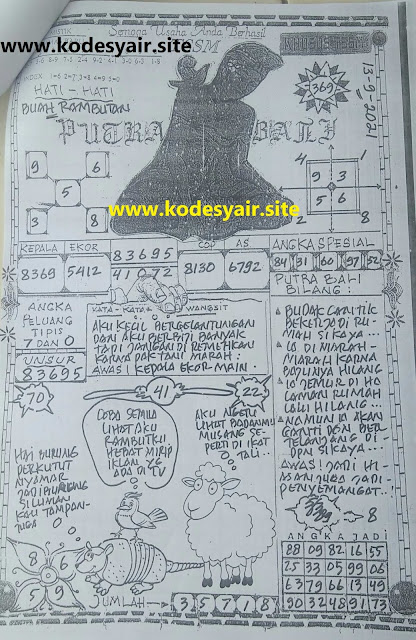 Semoga Usaha Anda Berhasil
www.kodesyair.site
INDEX: 1=6 2=7 3=8 4=9 5=0
HATI - HATI
BUAH RAMBUTAN
369
13-9-2021
PUTRA BALI
9 6
5
3 8
9 3
5 6
1
8
2
www.kodesyair.site
KEPALA EKOR 83695 COP AS ANGKA SPESIAL
8369 5412 41072 8130 6792 84 31 60 97 52
ANGKA
PELUANG
TIPIS
7 DAN 0
UNSUR
83695
KATA - KATA WANGSIT
AKU KECIL BERGELANTUNGAN
DAN AKU BERBIJI BANYAK
TAPI JANGAN DI REMEHKAN
KARNA DAKU MARAH
AWAS! KEPALA EKOR MAIN.
PUTRA BALI
BILANG:
BUDAK CANTIK
BEKERJA DI RU-
MAH SI KAYA..
IA DI MARAH-
MARAH KARNA
BAJUNYA HILANG
IA JEMUR DI HA
LAMAN RUMAH
LALU HILANG.
NAMUN IA AKAN
GANTI DGN BER
TELANJANG DI-
DPN SIKAYA..
AWAS! JADI HI-
MAN JUGA JADI
PENYEMANGAT..!
70
41
22
COBA SEMUA
LIHAT AKU
RAMBUTKU
HEBAT MIRIP
IKLAN
ADA DI TV
AKU NGERI
LIHAT BADANMU
MUSANG SE-
PERTI DI IKAT
TALI..
HAI BURUNG
PERKUTUT
NYAMAR
JADI BURUNG
SILUMAN
KAU TAMPAN-
JUGA
8
8 6
5 9
JUMLAH → 3 5 7 1 8
ANGKA JADI
88 09 82 16 55
25 33 05 99 06
63 79 66 13 49
90 32 48 91 73